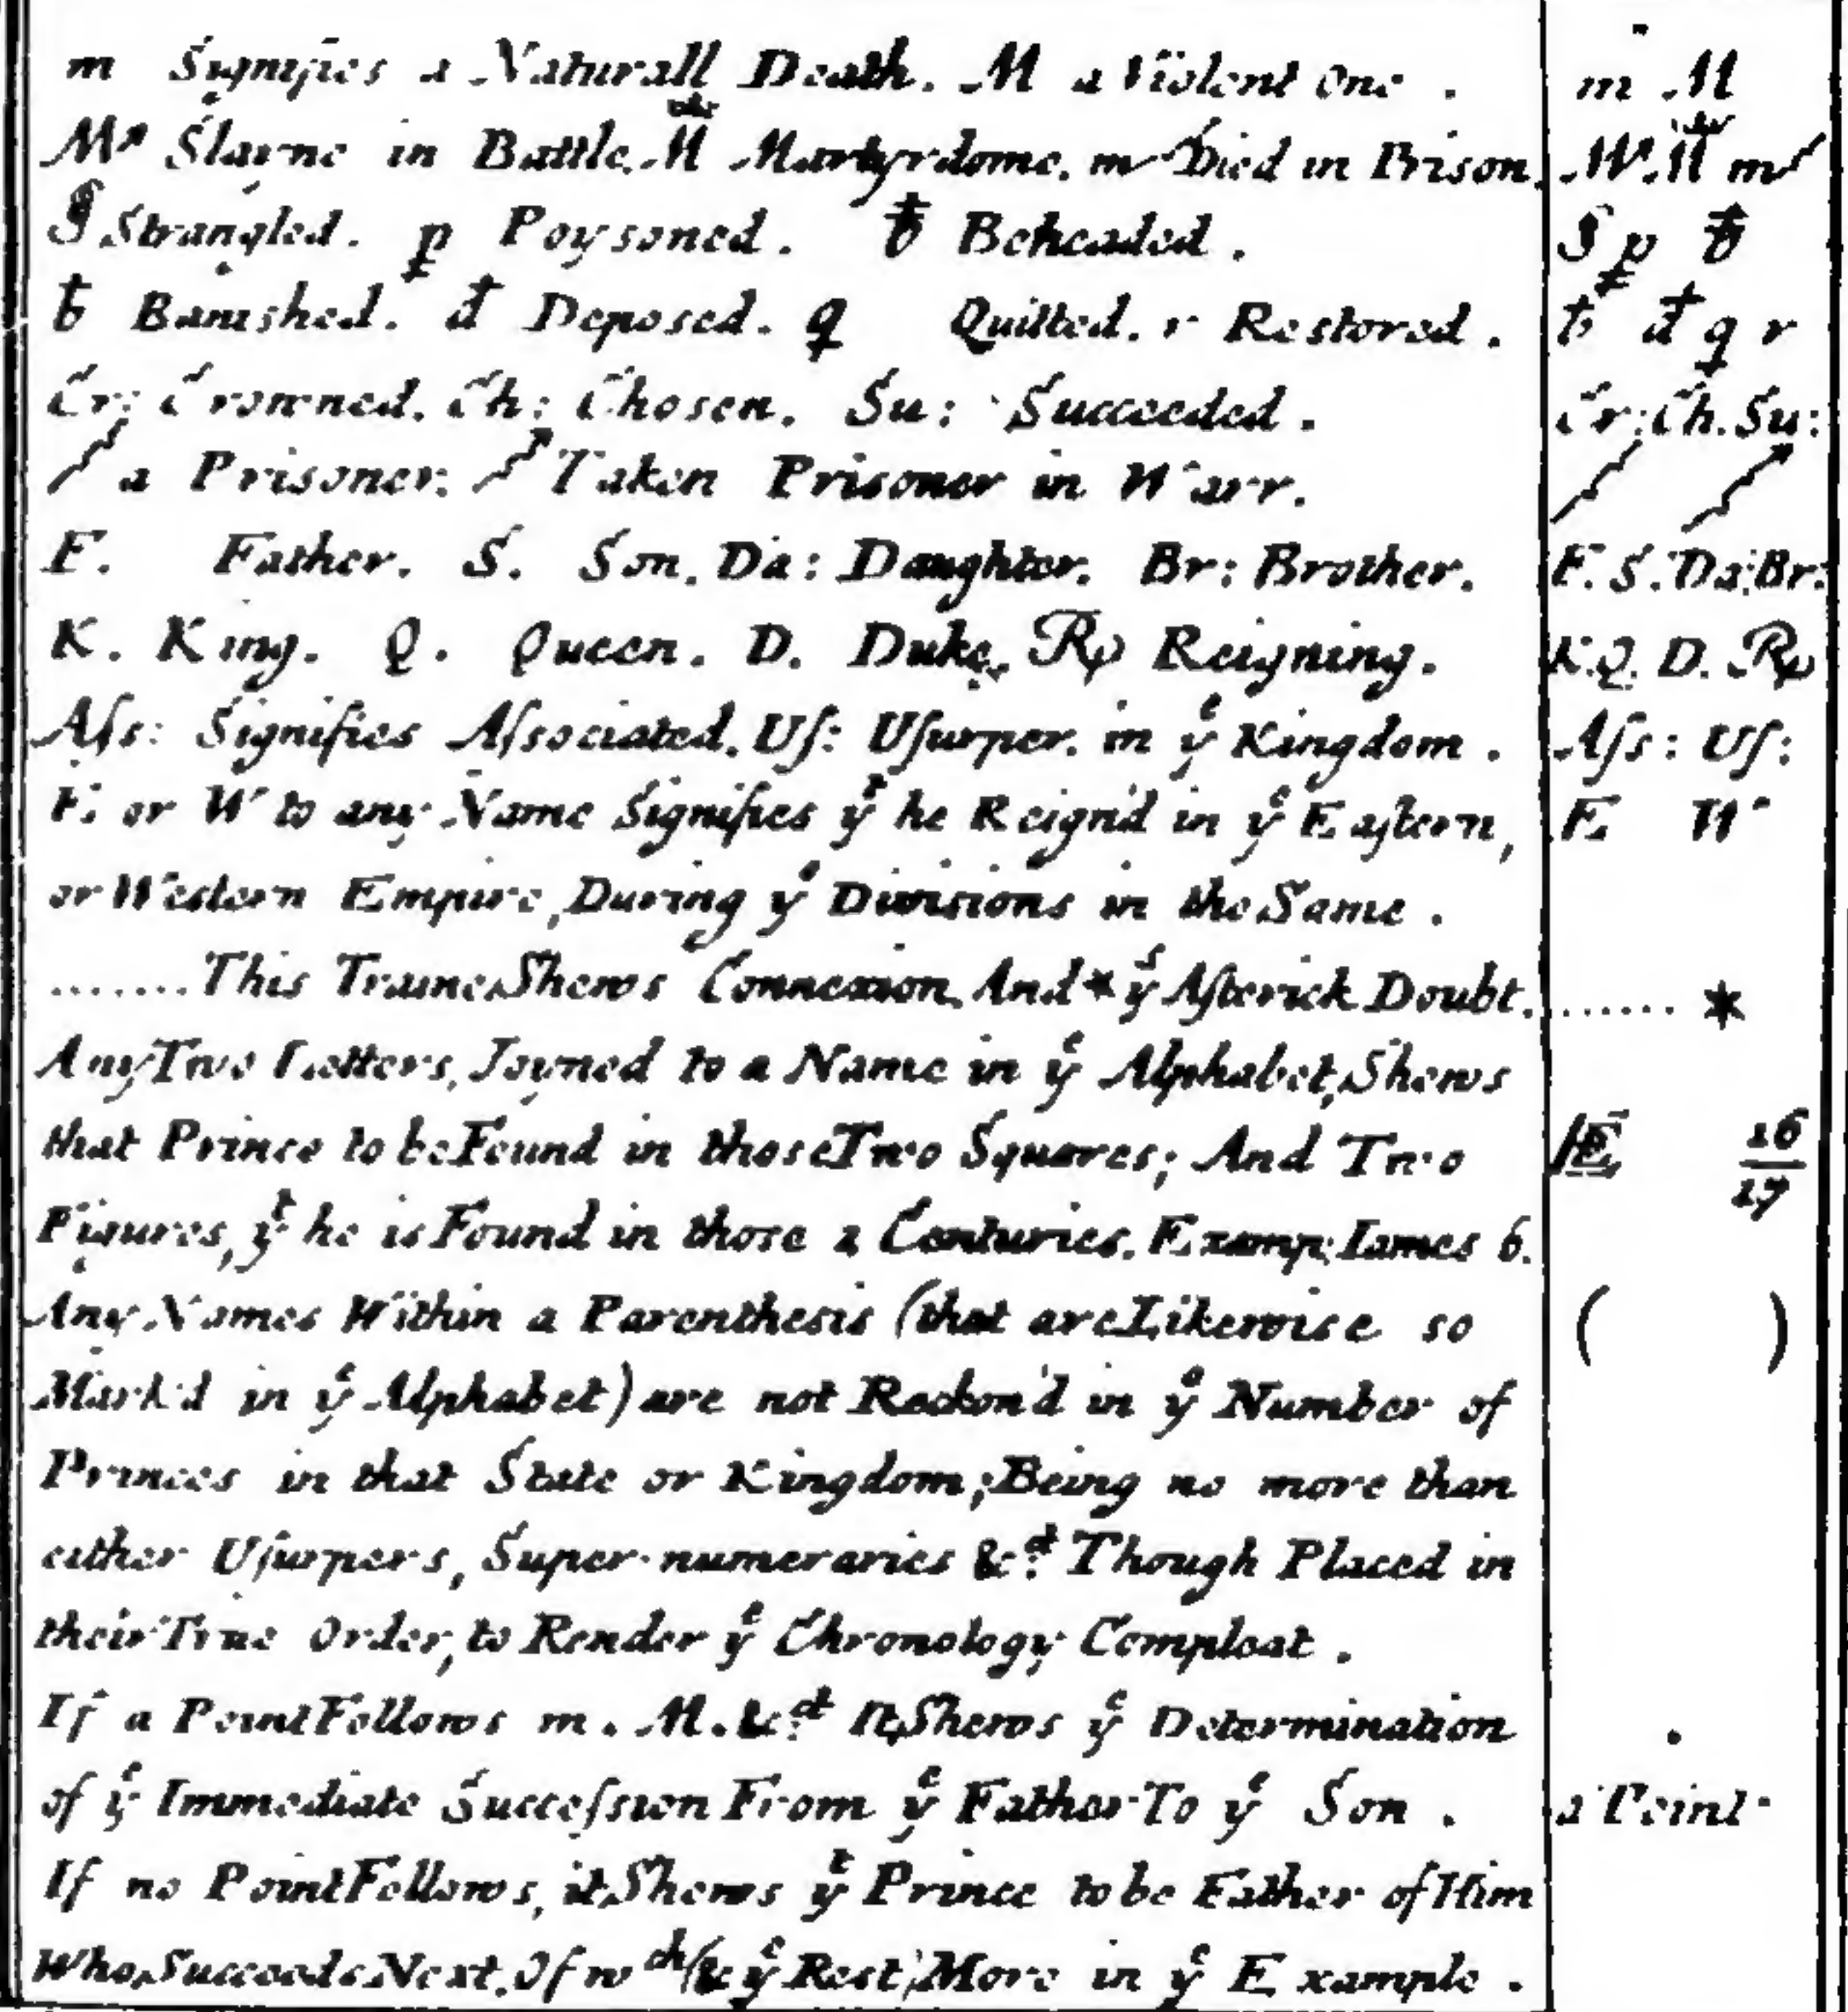 m Signifies a Naturall Death. M a Violent One . m M
M Slayne in Battle. M Martyrdome. m Died in Prison. M. M m
S Strangled. p Poysoned. ƀ Beheaded . S p ƀ
ƀ Banished. đ Deposed. q Quitted. r Restored . ƀ đ q r
Cr: Crowned. Ch: Chosen. Su: Succeeded . Cr: Ch. Su:
a Prisoner. Taken Prisoner in Warr.
F. Father. S. Son. Da: Daughter. Br: Brother. F. S. Da: Br:
K. King. Q. Queen. D. Duke. R Reigning. K. Q. D. R
Aſs: Signifies Aſsociated. Uſ: Uſurper. in yͤ Kingdom . Aſs: Uſ:
E. or W to any Name Signifies yͭ he Reign'd in yͤ Eaſtern, E. W
or Western Empire, During yͤ Divisions in the Same .
....... This Traine Shews Connexion. And * yͤ Aſterick Doubt. ....... *
Any Two Letters, Joyned to a Name in yͤ Alphabet, Shews
that Prince to be Found in those Two Squares; And Two 16
Figures, yͭ he is Found in those 2 Centuries. Examp: Iames 6. 17
Any Names Within a Parenthesis (that are Likewise so ( )
Mark'd in yͤ Alphabet) are not Reckon'd in yͤ Number of
Princes in that State or Kingdom; Being no more than
either Uſurpers, Super-numeraries &c. Though Placed in
their True Order, to Render yͤ Chronology Compleat .
If a Point Follows m. M. &c. It Shews yͤ Determination .
of yͤ Immediate Succeſsion From yͤ Father To yͤ Son . a Point
If no Point Follows, it Shews yͭ Prince to be Father of Him
Who Succeeds Next. Of wͨͪ (& yͤ Rest) More in yͤ Example .